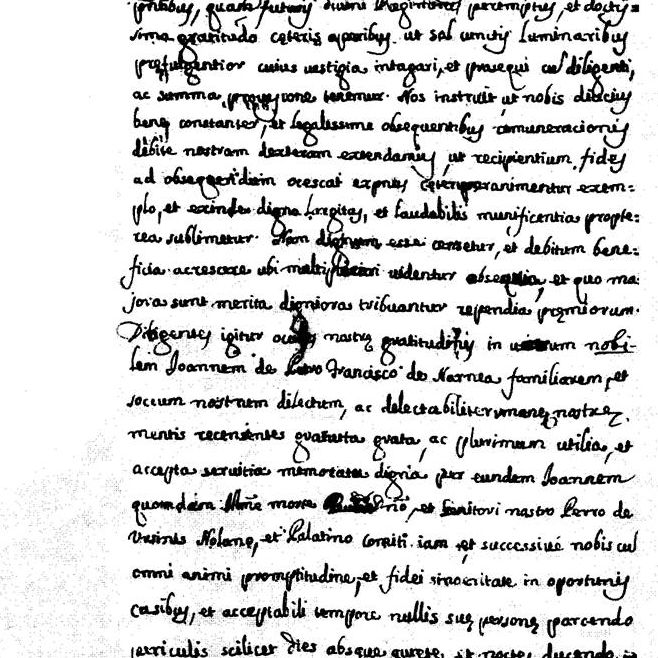 quam futuris divini peremptis, et doctis=
sima gratitudo ceteris operibus ut sol cunctis luminaribus
prefulgentior cuius vestigia indagari, et prosequi cum diligenti,
ac summa, provisione tenemur. Nos instruit ut nobis diutius
bene constanter, et legalissime obsequentibus remuneracionis
debite nostram dexteram extendamus, ut recipientium fides
ad obsequendum crescat exemtis animentur exem=
plo, et exinde digna largitas, et laudabilis munificentia propte=
rea sublimetur. Non dignum esse censetur, et debitum bene=
ficia accrescere ubi multiplicari videntur obsequia, et quo ma=
jora sunt merita digniora tribuantur rependia premiorum.
Diligentes igitur nostre gratitudinis in nobi-
lem Joannem de Petro Francisco de Narnea familiarem, et
socium nostrum dilectum, ac delectabiliter nostre
mentis recensentes grata, ac plurimum utilia, et
accepta servitia memoratu digna per eundem Joannem
quondam more et Genitori nostro Petro de
Ursinis Nolano, et Palatino comiti iam et successivé nobis cum
omni animi promptitudine, et fidei sinceritate in oportunis
casibus, et acceptabili tempore nullis sue persone parcendo
periculis scilicet dies absque quiete, et noctes ducendo